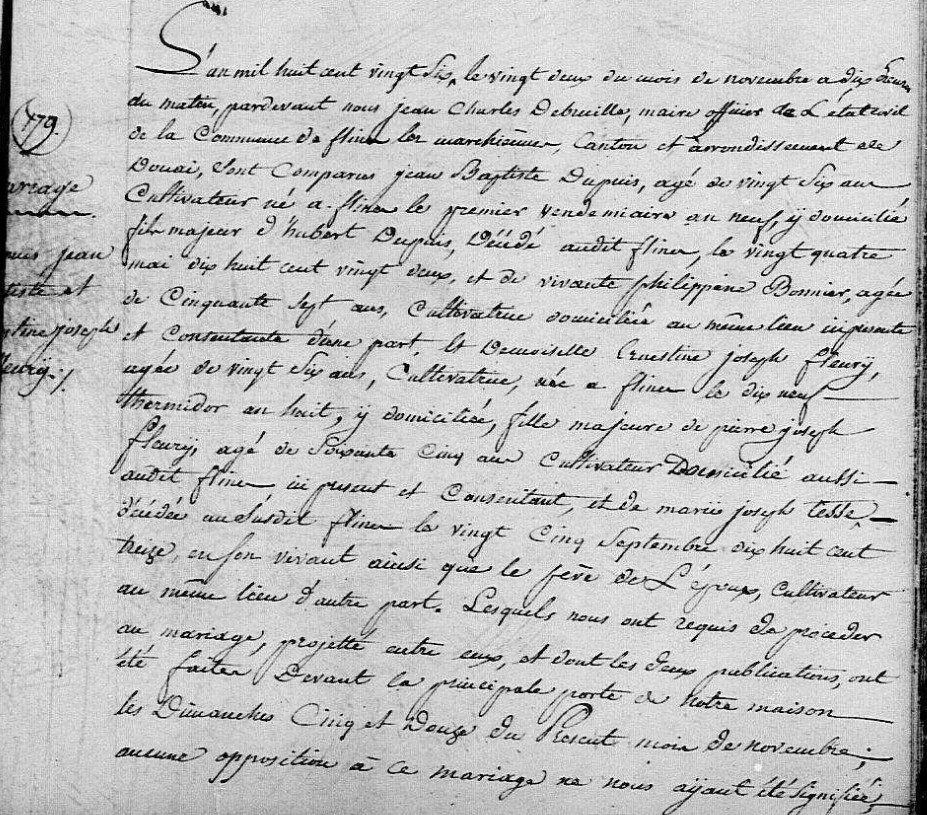 L'an mil huit cent vingt six, le vingt deux du mois de novembre a dix heures
du matin, pardevant nous jean Charles Debuille, maire officier de L'état civil
de la Commune de flines lez marchiennes, Canton et arrondissement de
Douai, Sont Comparus jean Baptiste Dupuis, agé de vingt Six ans
Cultivateur né a flines le premier Vendemiaire an neuf, ÿ domicilié
fils majeur d'hubert Dupuis, Décédé audit flines, le vingt quatre
mai dix huit cent vingt deux, et de vivante philippine Bonnier, agée
de Cinquante Sept ans, Cultivatrice domiciliée au même lieu ici presente
et Consentante d'une part, Et Demoiselle Ernestine joseph fleurÿ,
agée de vingt Six ans, Cultivatrice, née a flines le dix neuf
thermidor an huit, ÿ domiciliée, fille majeure de pierre joseph
fleurÿ, agé de Soixante Cinq ans Cultivateur Domicilié aussi
audit flines ici present et Consentant, et de marie joseph tesse
décédée au Susdit flines le vingt Cinq Septembre dix huit cent
treize, en Son vivant ainsi que le père de L'époux, Cultivateur
au même lieu d'autre part. Lesquels nous ont requis de proceder
au mariage, projetté entre eux, et dont les deux publications, ont
été faites Devant la principale porte de Notre maison
les Dimanches Cinq et Douze du Present mois de novembre;
aucune opposition à ce mariage ne nous aÿant été Signifiée,
479.
ariage
puis jean
tiste et
stine joseph
fleurÿ./